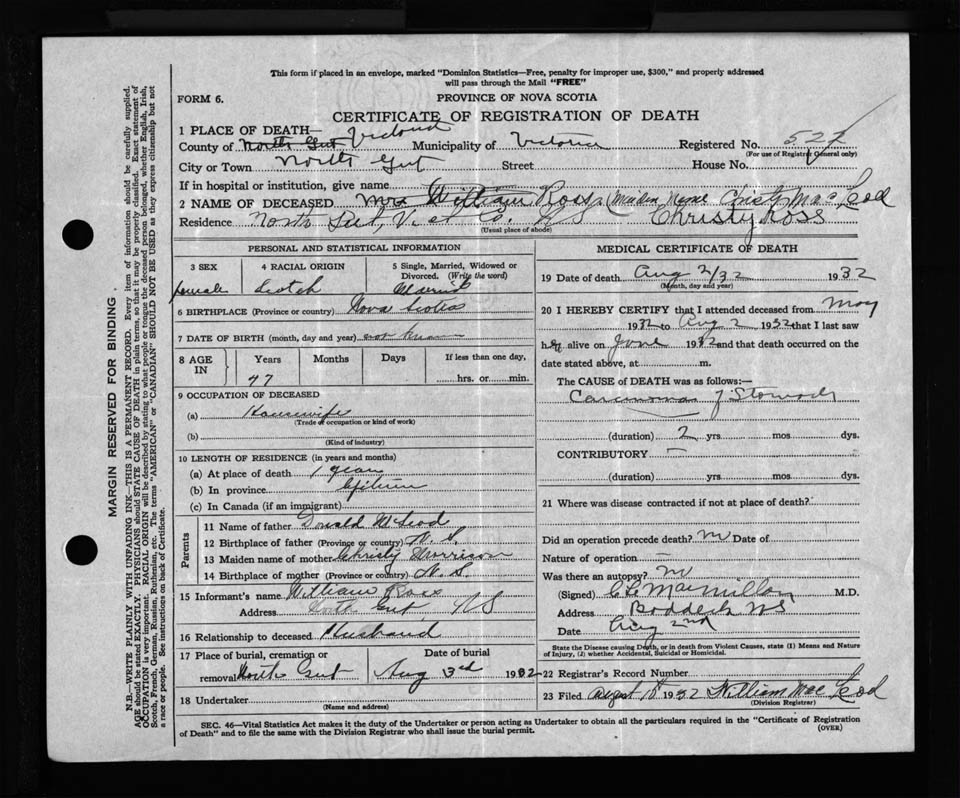 This form if placed in an envelope, marked "Dominion Statistics—Free, penalty for improper use, $300," and properly addressed
will pass through the Mail "FREE"
FORM 6.
PROVINCE OF NOVA SCOTIA
CERTIFICATE OF REGISTRATION OF DEATH
1 PLACE OF DEATH—
County of North Gut Victoria Municipality of Victoria Registered No. 527
(For use of Registrar General only)
City or Town North Gut Street House No.
If in hospital or institution, give name
2 NAME OF DECEASED Mrs William Ross (Maiden Name Christy MacLeod
Christy Ross
Residence North Gut, Vict Co. NS
(Usual place of abode)
PERSONAL AND STATISTICAL INFORMATION
3 SEX 4 RACIAL ORIGIN 5 Single, Married, Widowed or Divorced. (Write the word)
female Scotch Married
6 BIRTHPLACE (Province or country) Nova Scotia
7 DATE OF BIRTH (month, day and year) not known
8 AGE IN Years Months Days If less than one day,
47 hrs. or min.
9 OCCUPATION OF DECEASED
(a) Housewife
(Trade or occupation or kind of work)
(b)
(Kind of industry)
10 LENGTH OF RESIDENCE (in years and months)
(a) At place of death 1 year
(b) In province
(c) In Canada (if an immigrant)
Parents
11 Name of father Donald McLeod
12 Birthplace of father (Province or country) N. S.
13 Maiden name of mother Christy Morrison
14 Birthplace of mother (Province or country) N. S.
15 Informant's name William Ross
Address North Gut NS
16 Relationship to deceased Husband
17 Place of burial, cremation or removal North Gut Date of burial Aug 3rd 1932
18 Undertaker
(Name and address)
MEDICAL CERTIFICATE OF DEATH
19 Date of death Aug 2/32 1932
(Month, day and year)
20 I HEREBY CERTIFY that I attended deceased from May
1932 to Aug 2 1932 that I last saw
her alive on June 1932 and that death occurred on the
date stated above, at m.
The CAUSE OF DEATH was as follows:—
Carcinoma of Stomach
(duration) 2 yrs. mos. dys.
CONTRIBUTORY —
(duration) yrs. mos. dys.
21 Where was disease contracted if not at place of death?
Did an operation precede death? no Date of
Nature of operation —
Was there an autopsy? no
(Signed) C L MacMillan M.D.
Address Baddeck NS
Date Aug 2nd
State the Disease causing Death, or in death from Violent Causes, state (1) Means and Nature
of Injury, (2) whether Accidental, Suicidal or Homicidal.
22 Registrar's Record Number
23 Filed August 18 1932 William MacLeod
(Division Registrar)
SEC. 46—Vital Statistics Act makes it the duty of the Undertaker or person acting as Undertaker to obtain all the particulars required in the "Certificate of Registration
of Death" and to file the same with the Division Registrar who shall issue the burial permit.
(OVER)
MARGIN RESERVED FOR BINDING
N.B.—WRITE PLAINLY WITH UNFADING INK—THIS IS A PERMANENT RECORD. Every item of information should be carefully supplied.
AGE should be stated EXACTLY. PHYSICIANS should STATE CAUSE OF DEATH in plain terms, so that it may be properly classified. Exact statement of
OCCUPATION is very important. RACIAL ORIGIN will be described by stating to what people or tongue the deceased person belonged, whether English, Irish,
Scotch, French, German, Russian, Ruthenian, etc. The terms "AMERICAN" or "CANADIAN" SHOULD NOT BE USED as they express citizenship but not
a race or people. See instructions on back of Certificate.